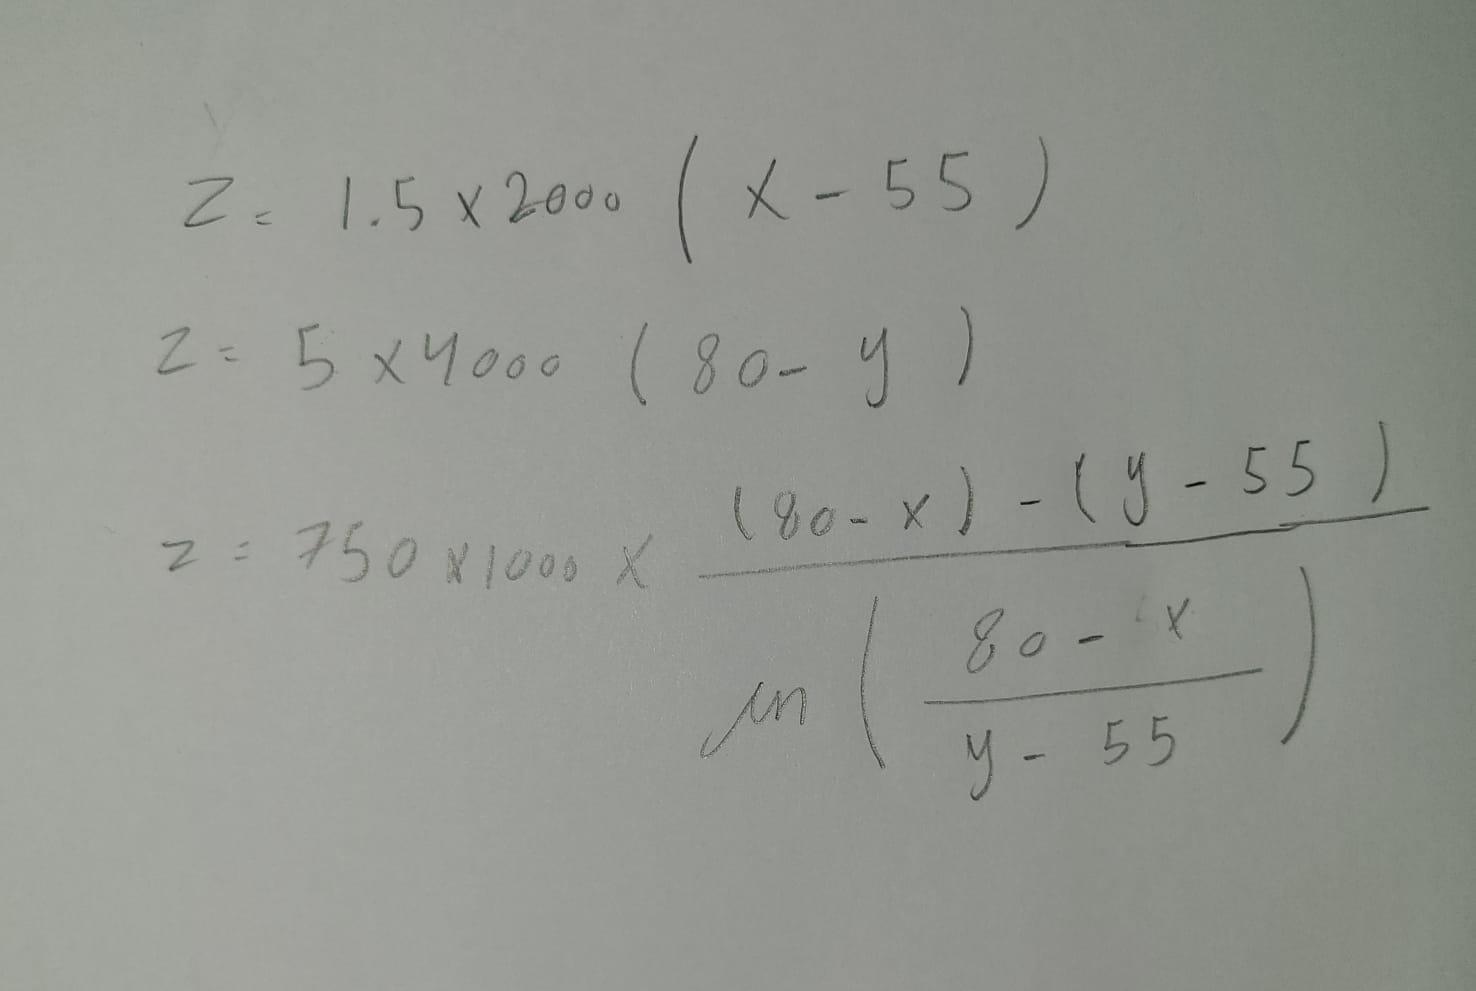 Z = 1.5 x 2000 ( x - 55 )
Z = 5 x 4000 ( 80 - y )
Z = 750 x 1000 x \frac{(80 - x) - (y - 55)}{\ln \left( \frac{80 - x}{y - 55} \right)}